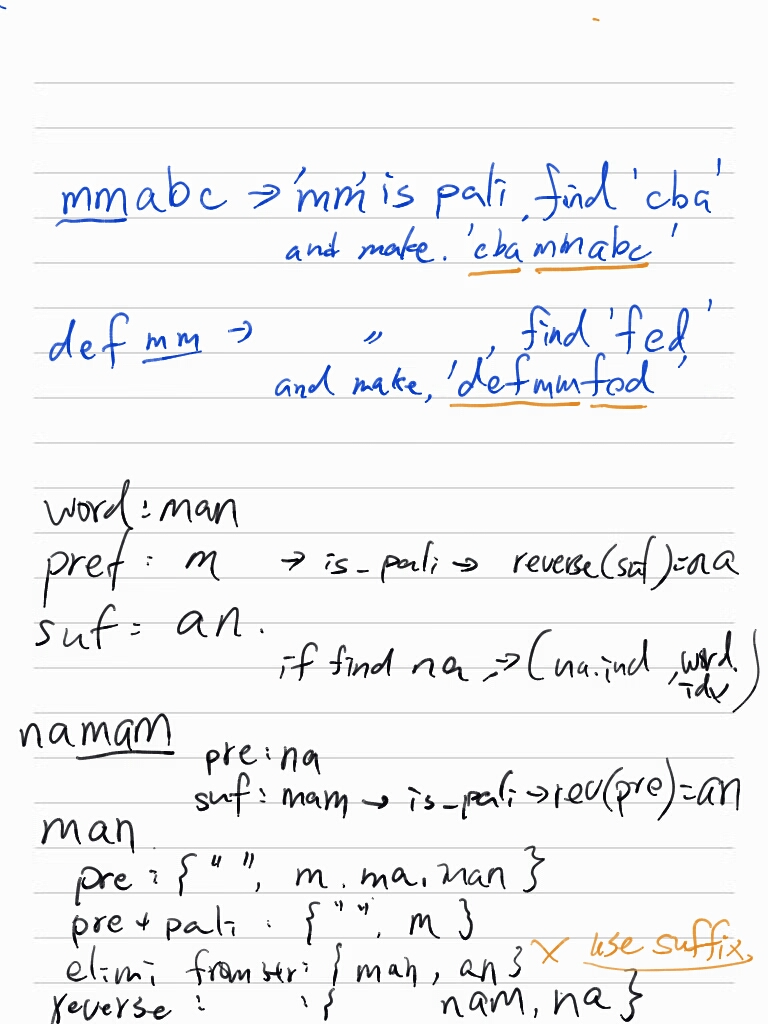 mmabc → 'mm' is pali, find 'cba'
and make. 'cba mmabc'
def mm → " , find 'fed,'
and make, 'defmmfed'
word : man
pref : m → is_pali → reverse(suf)=na
suf = an.
if find na, → (na.ind, word.idx)
namam
pre : na
suf : mam → is_pali → rev(pre)=an
man
pre : { " ", m. ma, man }
pre + pali : { " ", m }
elimi from str : { man, an } X use suffix,
reverse : { nam, na }